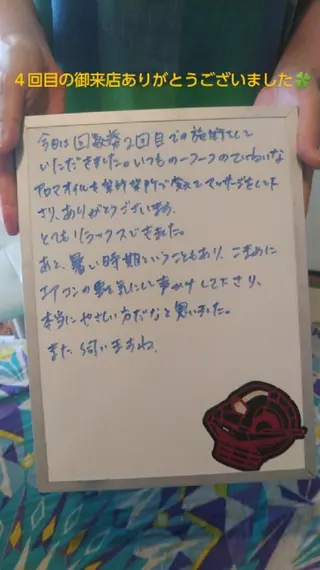 4回目の御来店ありがとうございました🍀
今日は回数券2回目での施術をして
いただきました。いつも一つ一つのていねいな
アロマオイルを
マッサージをして下
さり、ありがとうございます。
とてもリラックスできました。
あと、暑い時期ということもあり、こまめに
エアコンの事を気にして声かけして下さり、
本当にやさしい方だなと思いました。
また伺いますね。